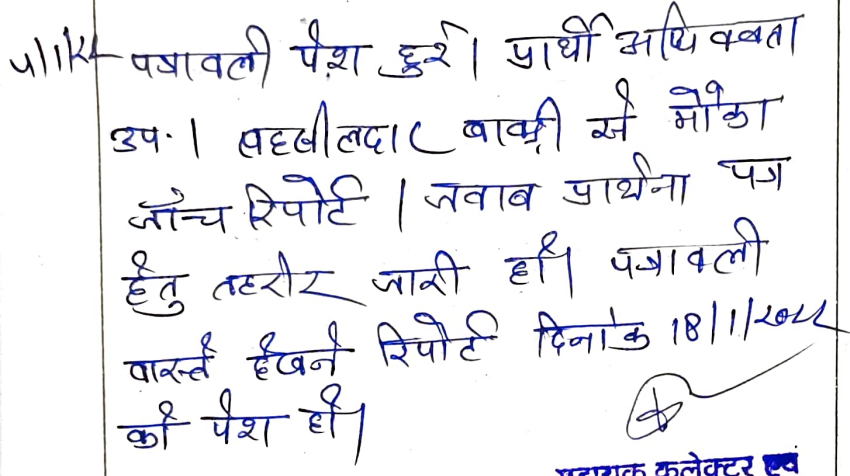 4/1/22 पत्रावली पेश हुई। प्रार्थी अधिवक्ता
उप.। तहसीलदार से मौका
जाँच रिपोर्ट / जवाब प्रार्थना पत्र
हेतु तहरीर जारी हो। पत्रावली
वास्ते देखने रिपोर्ट दिनांक 18/1/2022
को पेश हो।
सहायक कलेक्टर एवं